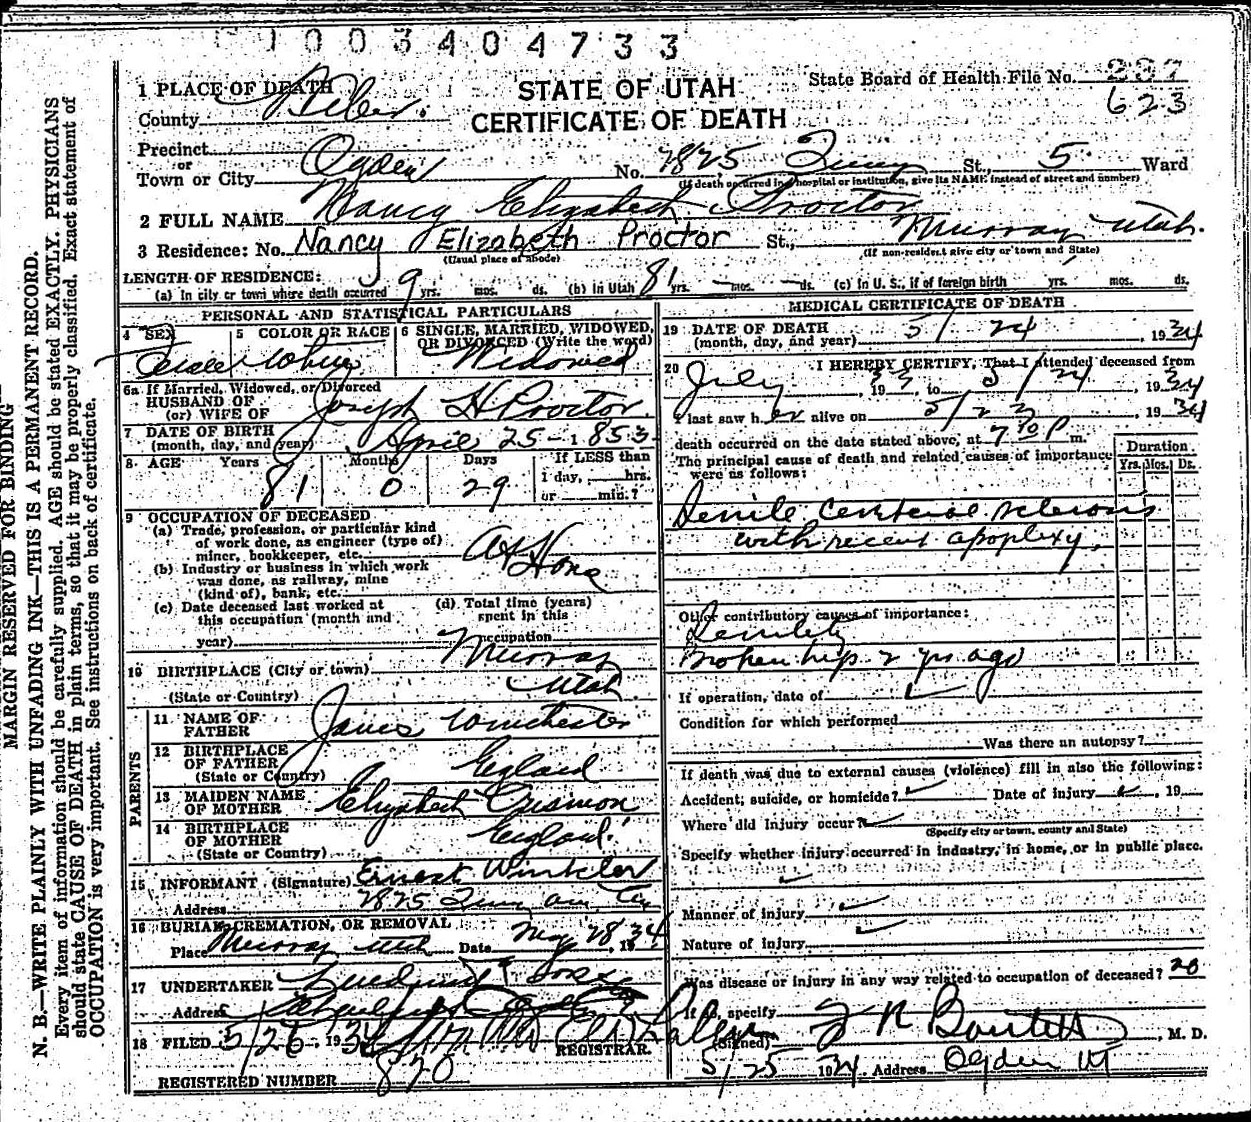 1003404733
STATE OF UTAH
CERTIFICATE OF DEATH
State Board of Health File No. 237
623
1 PLACE OF DEATH
County Weber.
Precinct
or
Town or City Ogden No. 2825 Quincy St., 5 Ward
(If death occurred in hospital or institution, give its NAME instead of street and number)
2 FULL NAME Nancy Elizabeth Proctor
3 Residence: No. Nancy Elizabeth Proctor St., Murray Utah.
(Usual place of abode) (If non-resident give city or town and State)
LENGTH OF RESIDENCE:
(a) In city or town where death occurred 9 yrs. mos. ds. (b) in Utah 81 yrs. mos. ds. (c) in U. S., if of foreign birth yrs. mos. ds.
PERSONAL AND STATISTICAL PARTICULARS
4 SEX 5 COLOR OR RACE 6 SINGLE, MARRIED, WIDOWED, OR DIVORCED (Write the word)
Female White Widowed
6a If Married, Widowed, or Divorced
HUSBAND OF
(or) WIFE OF Joseph H Proctor.
7 DATE OF BIRTH
(month, day, and year) April 25 - 1853
8 AGE Years Months Days If LESS than
1 day, hrs.
or min.?
81 0 29
9 OCCUPATION OF DECEASED
(a) Trade, profession, or particular kind
of work done, as engineer (type of)
miner, bookkeeper, etc. At Home
(b) Industry or business in which work
was done, as railway, mine
(kind of), bank, etc.
(c) Date deceased last worked at
this occupation (month and
year)
(d) Total time (years)
spent in this
occupation
10 BIRTHPLACE (City or town) Murray
(State or Country) Utah
PARENTS
11 NAME OF
FATHER James Winchester
12 BIRTHPLACE
OF FATHER
(State or Country) England
13 MAIDEN NAME
OF MOTHER Elizabeth Crismon
14 BIRTHPLACE
OF MOTHER
(State or Country) England.
15 INFORMANT (Signature) Ernest Winkler
Address 2825 Quincy ave
16 BURIAL, CREMATION, OR REMOVAL
Place Murray Utah Date May 28, 1934
17 UNDERTAKER Lindquist & Sons
Address Ogden
18 FILED 5/26 1934
REGISTRAR.
REGISTERED NUMBER 820
MEDICAL CERTIFICATE OF DEATH
19 DATE OF DEATH
(month, day, and year) 5/24, 1934
20 I HEREBY CERTIFY, That I attended deceased from
July, 1933 to 5/24, 1934
I last saw her alive on 5/23, 1934
death occurred on the date stated above, at 7 30 P m.
The principal cause of death and related causes of importance
were as follows:
Duration
Yrs. Mos. Ds.
Senile cerebral sclerosis
with recent apoplexy.
Other contributory causes of importance:
Senility
Broken hip 2 yrs ago
If operation, date of
Condition for which performed
Was there an autopsy?
If death was due to external causes (violence) fill in also the following:
Accident, suicide, or homicide? Date of injury , 19
Where did injury occur?
(Specify city or town, county and State)
Specify whether injury occurred in industry, in home, or in public place.
Manner of injury
Nature of injury
Was disease or injury in any way related to occupation of deceased? no
If so, specify
(Signed) , M. D.
5/25 1934. Address Ogden Ut
MARGIN RESERVED FOR BINDING
N. B.—WRITE PLAINLY WITH UNFADING INK—THIS IS A PERMANENT RECORD.
Every item of information should be carefully supplied. AGE should be stated EXACTLY. PHYSICIANS
should state CAUSE OF DEATH in plain terms, so that it may be properly classified. Exact statement of
OCCUPATION is very important. See instructions on back of certificate.